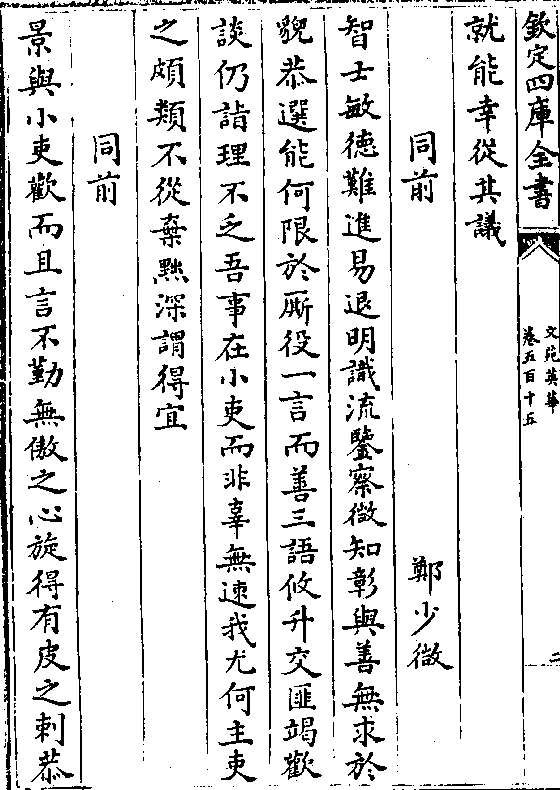 欽定四庫全書
文苑英華
卷五百十五
二
就能幸從其議
同前 鄭少微
智士敏德難進易退明識流鑒察微知彰與善無求於
貌恭選能何限於厮役一言而善三語攸升交匪竭歡
談仍詣理不乏吾事在小吏而非辜無速我尤何主吏
之頗類不從棄㸃深謂得宜
同前
景與小吏歡而且言不勤無傲之心旋得有皮之刺恭